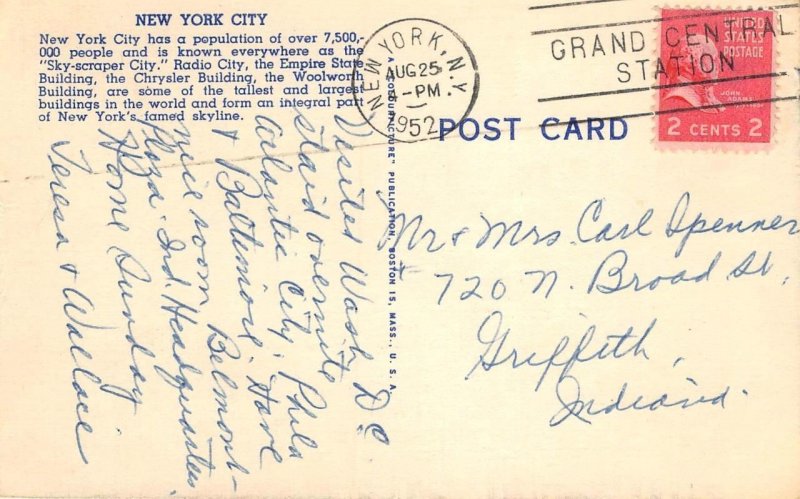 NEW YORK CITY
New York City has a population of over 7,500,-
000 people and is known everywhere as the
"Sky-scraper City." Radio City, the Empire State
Building, the Chrysler Building, the Woolworth
Building, are some of the tallest and largest
buildings in the world and form an integral part
of New York's famed skyline.
Visited Wash D.C.
staid overnite
Atlantic City, Phila
& Baltimore. Have
nice room Belmont-
Plaza. Ind. Headquarters
Home Sunday
Teresa & Wallace
A "COLOURPICTURE" PUBLICATION, BOSTON 15, MASS., U.S.A.
NEW YORK, N.Y.
AUG 25
-PM
1952
GRAND CENTRAL
STATION
UNITED
STATES
POSTAGE
JOHN ADAMS
2 CENTS 2
POST CARD
Mr & Mrs. Carl Spenner
720 N. Broad St.
Griffith,
Indiana.